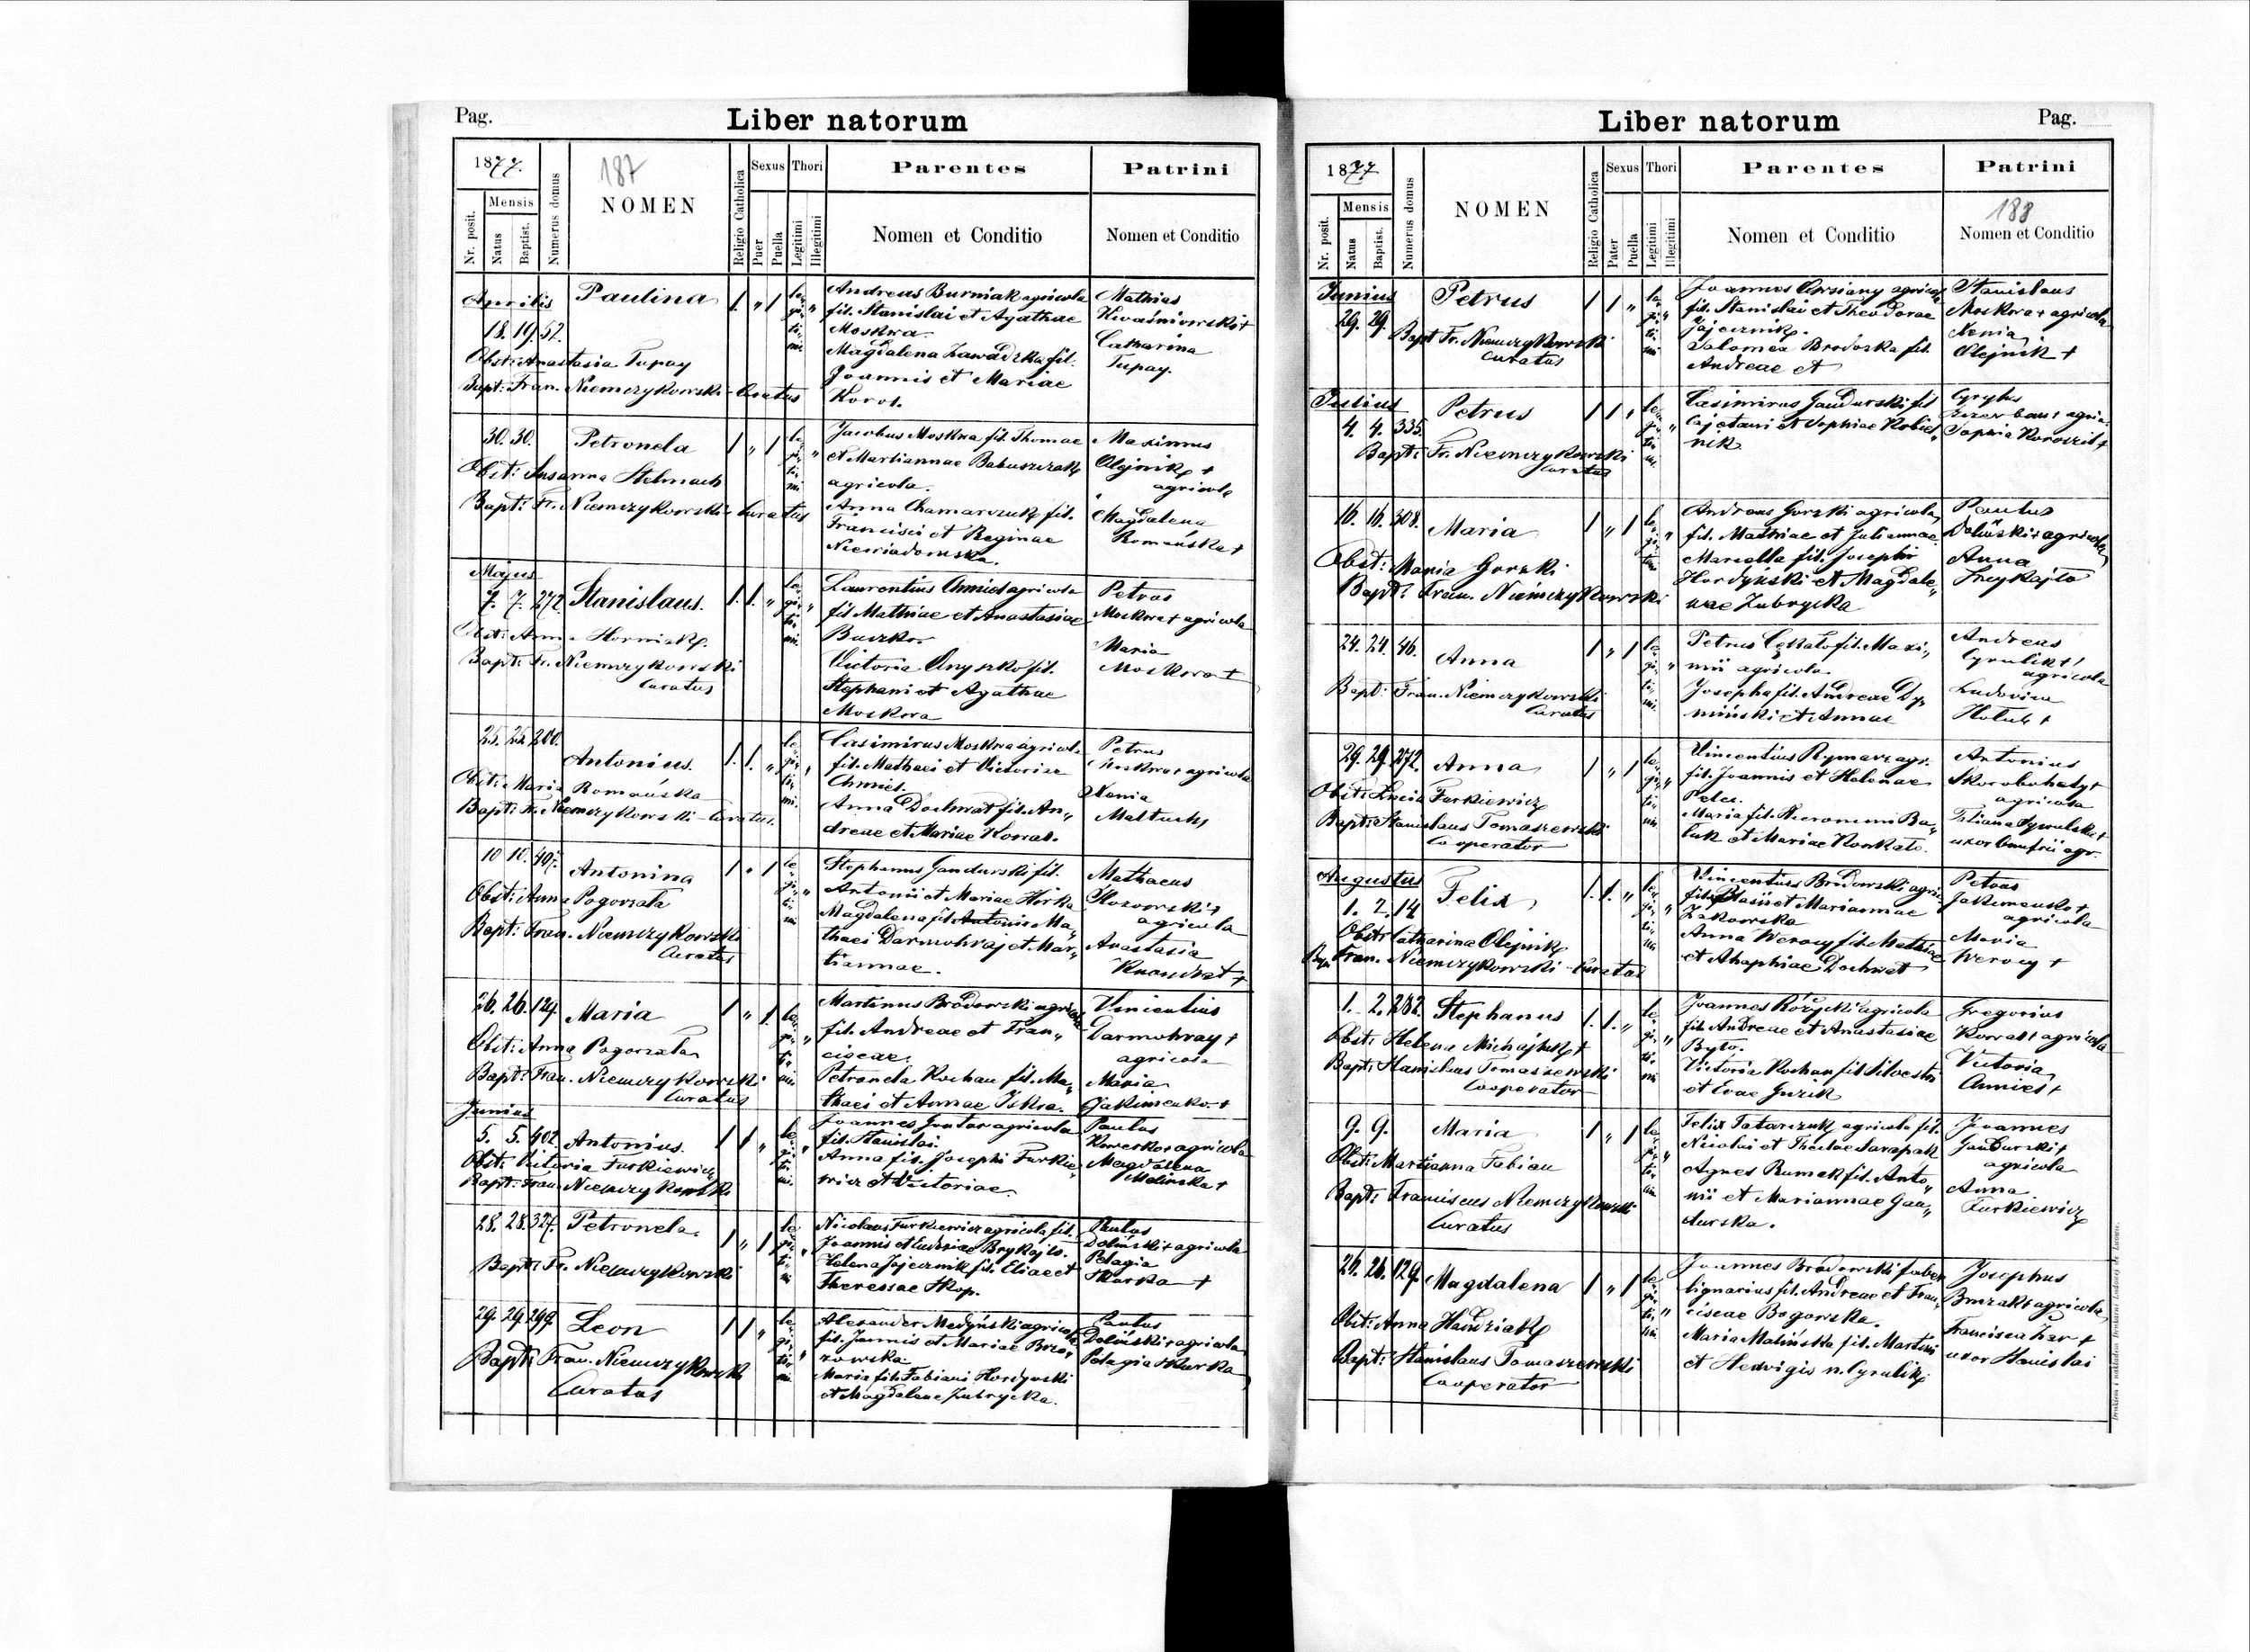 Pag.
Liber natorum
1877.
187
Nr. posit.
Mensis
Natus
Baptist.
Numerus domus
NOMEN
Religio Catholica
Sexus
Puer
Puella
Thori
Legitimi
Illegitimi
Parentes
Nomen et Conditio
Patrini
Nomen et Conditio
Aprilis
18. 19. 52.
Paulina
1. " 1
Obst: Anastasia Tupay
Bapt: Fran. Niemczykowski - Curatus
Andreas Burniak agricola
fil. Stanislai et Agathae
Moskwa.
Magdalena Zawadzka fil.
Joannis et Mariae
Korol.
Mathias
Kwaśniowski +
Catharina
Tupay.
30. 30.
Petronela
1 " 1
Obst: Susanna Stelmach
Bapt: Fr. Niemczykowski - Curatus
Jacobus Moskwa fil. Thomae
et Martiannae
agricola.
Anna Chamarczuk fil.
Francisci et Reginae
Niewiadomska.
Maximus
Olejnik +
agricola
Magdalena
Romańska +
Majus
7. 7. 272.
Stanislaus.
1. 1. "
Obst: Anna Horniak.
Bapt: Fr. Niemczykowski
Curatus
Laurentius Chmiel agricola
fil Mathiae et Anastasiae
Buczko.
Victoria Onyszko fil.
Stephani et Agathae
Moskwa
Petrus
Moskwa + agricola
Maria
Moskwa +
25. 25. 200.
Antonius.
1. 1. "
Obst: Maria Romańska
Bapt: Fr. Niemczykowski - Curatus.
Casimirus Moskwa agricola
fil. Mathaei et Victoriae
Chmiel.
Anna Dochwat fil. An„
dreae et Mariae Kowal.
Petrus
Moskwa + agricola
Xenia
10 10. 407.
Antonina
1 " 1
Obst: Anna Pogorzała
Bapt: Fran. Niemczykowski
Curatus
Stephanus Gandurski fil.
Antonii et Mariae Hirka
Magdalena fil. Antonii Ma„
thaei Darmohraj et Mar„
tiannae.
Mathaeus
agricola
Anastasia
26. 26. 129.
Maria
1 " 1.
Obst: Anna Pogorzała
Bapt: Fran. Niemczykowski
Curatus
Martinus Brodowski agricola
fil. Andreae et Fran„
ciscae.
Petronela Kochan fil. Ma„
thaei et Annae Iskra.
Vincentius
Darmohray +
agricola
Maria
Jakimenko. +
Junius
5. 5. 402.
Antonius.
1 1 "
Obst: Victoria Furkiewicz
Bapt: Fran. Niemczykowski
Joannes agricola
fil. Stanislai.
Anna fil. Josephi Furkie„
wicz et Victoriae.
Paulus
agricola
Magdalena
Malinska +
28. 28. 327.
Petronela.
1 " 1
Bapt: Fr. Niemczykowski
Nicolaus Furkiewicz agricola fil.
Joannis et Brykajło.
Helena Jajecznik fil. Eliae et
Theressae Skop.
Paulus
Doliński + agricola
Pelagia
Skurka +
29. 29. 299.
Leon
1 1 "
Bapt: Fran. Niemczykowski
Curatus
Alexander Medyński agricola
fil. Joannis et Mariae Brzo„
zowska
Maria fil. Fabiani Hordynski
et Magdalene Zubrycka.
Paulus
Doliński + agricola
Pelagia Skurka
Liber natorum
Pag.
1877
Nr. posit.
Mensis
Natus
Baptist.
Numerus domus
NOMEN
Religio Catholica
Sexus
Pater
Puella
Thori
Legitimi
Illegitimi
Parentes
Nomen et Conditio
Patrini
188
Nomen et Conditio
Junius
29. 29.
Petrus
1 1 "
Bapt Fr. Niemczykowski
Curatus
Joannes agricola
fil. Stanislai et Theodorae
Jajecznik.
Salomea Brodoska fil.
Andreae et
Stanislaus
Moskwa + agricola
Xenia
Olejnik +
Julius
4. 4. 335.
Petrus
1 1 "
Bapt: Fr. Niemczykowski
Curatus
Casimirus Gandurski fil
Cajetani et Sophiae
nik
Cyrylus
Szczerban + agric.
Sophia
16. 16. 308.
Maria
1 " 1
Obst: Maria Gorski
Bapt: Fran. Niemczykowski
Andreas Gorski agricola
fil. Mathiae et Juliannae.
Marcella fil. Josephi
Hordyński et Magdale„
nae Zubrycka
Paulus
Doliński + agricola
Anna
24. 24. 46.
Anna
1 " 1
Bapt: Fran. Niemczykowski
Curatus
Petrus fil. Maxi„
mii agricola
Josepha fil. Andreae Dy„
miński et Annae
Andreas
Cyrulik +
agricola
Ludovica
Holub +
29. 29. 272.
Anna
1 " 1
Obst: Lucia Furkiewicz
Bapt: Stanislaus Tomaszewski
Cooperator
Vincentius Rymarz agr.
fil. Joannis et Helenae
Pelc.
Maria fil. Hieronimi Ba„
luk et Mariae
Antonius
Skorobohaty +
agricola
Tatiana
uxor Onufrii agr.
Augustus
1. 2. 14
Felix
1. 1. "
Obst: Catharina Olejnik
Bap. Fran. Niemczykowski - Curatus
Vincentius Brodowski agric.
fil. Blasii et Mariannae
Żukowska
Anna Werocy fil. Mathiae
et Ahaphiae Dochwat
Petrus
Jakimenko +
agricola
Maria
Werocy +
1. 2. 282.
Stephanus
1. 1. "
Obst: Helena Michajluk +
Bapt: Stanislaus Tomaszewski
Cooperator
Joannes Różycki agricola
fil. Andreae et Anastasiae
Byto.
Victoria Kochan fil Silvestri
et Evae Guzik
Gregorius
Kowal + agricola
Victoria
Chmiel +
9. 9.
Maria
1 " 1
Obst: Martianna Fabian
Bapt: Franciscus Niemczykowski
Curatus
Felix Tatarczuk agricola fil.
Nicolai et Theclae Sarapak
Agnes Rumak fil. Anto„
nii et Mariannae Gan„
durska.
Joannes
Gandurski +
agricola
Anna
Furkiewicz
26. 26. 129.
Magdalena
1 " 1
Obst: Anna Hawdziak
Bapt: Stanislaus Tomaszewski
Cooperator
Joannes Brodowski faber
lignarius fil. Andreae et Fran„
ciscae Bogorska.
Maria Malińska fil. Martini
et Hedvigis n. Cyrulik
Josephus
agricola
Francisca Żar +
uxor Stanislai